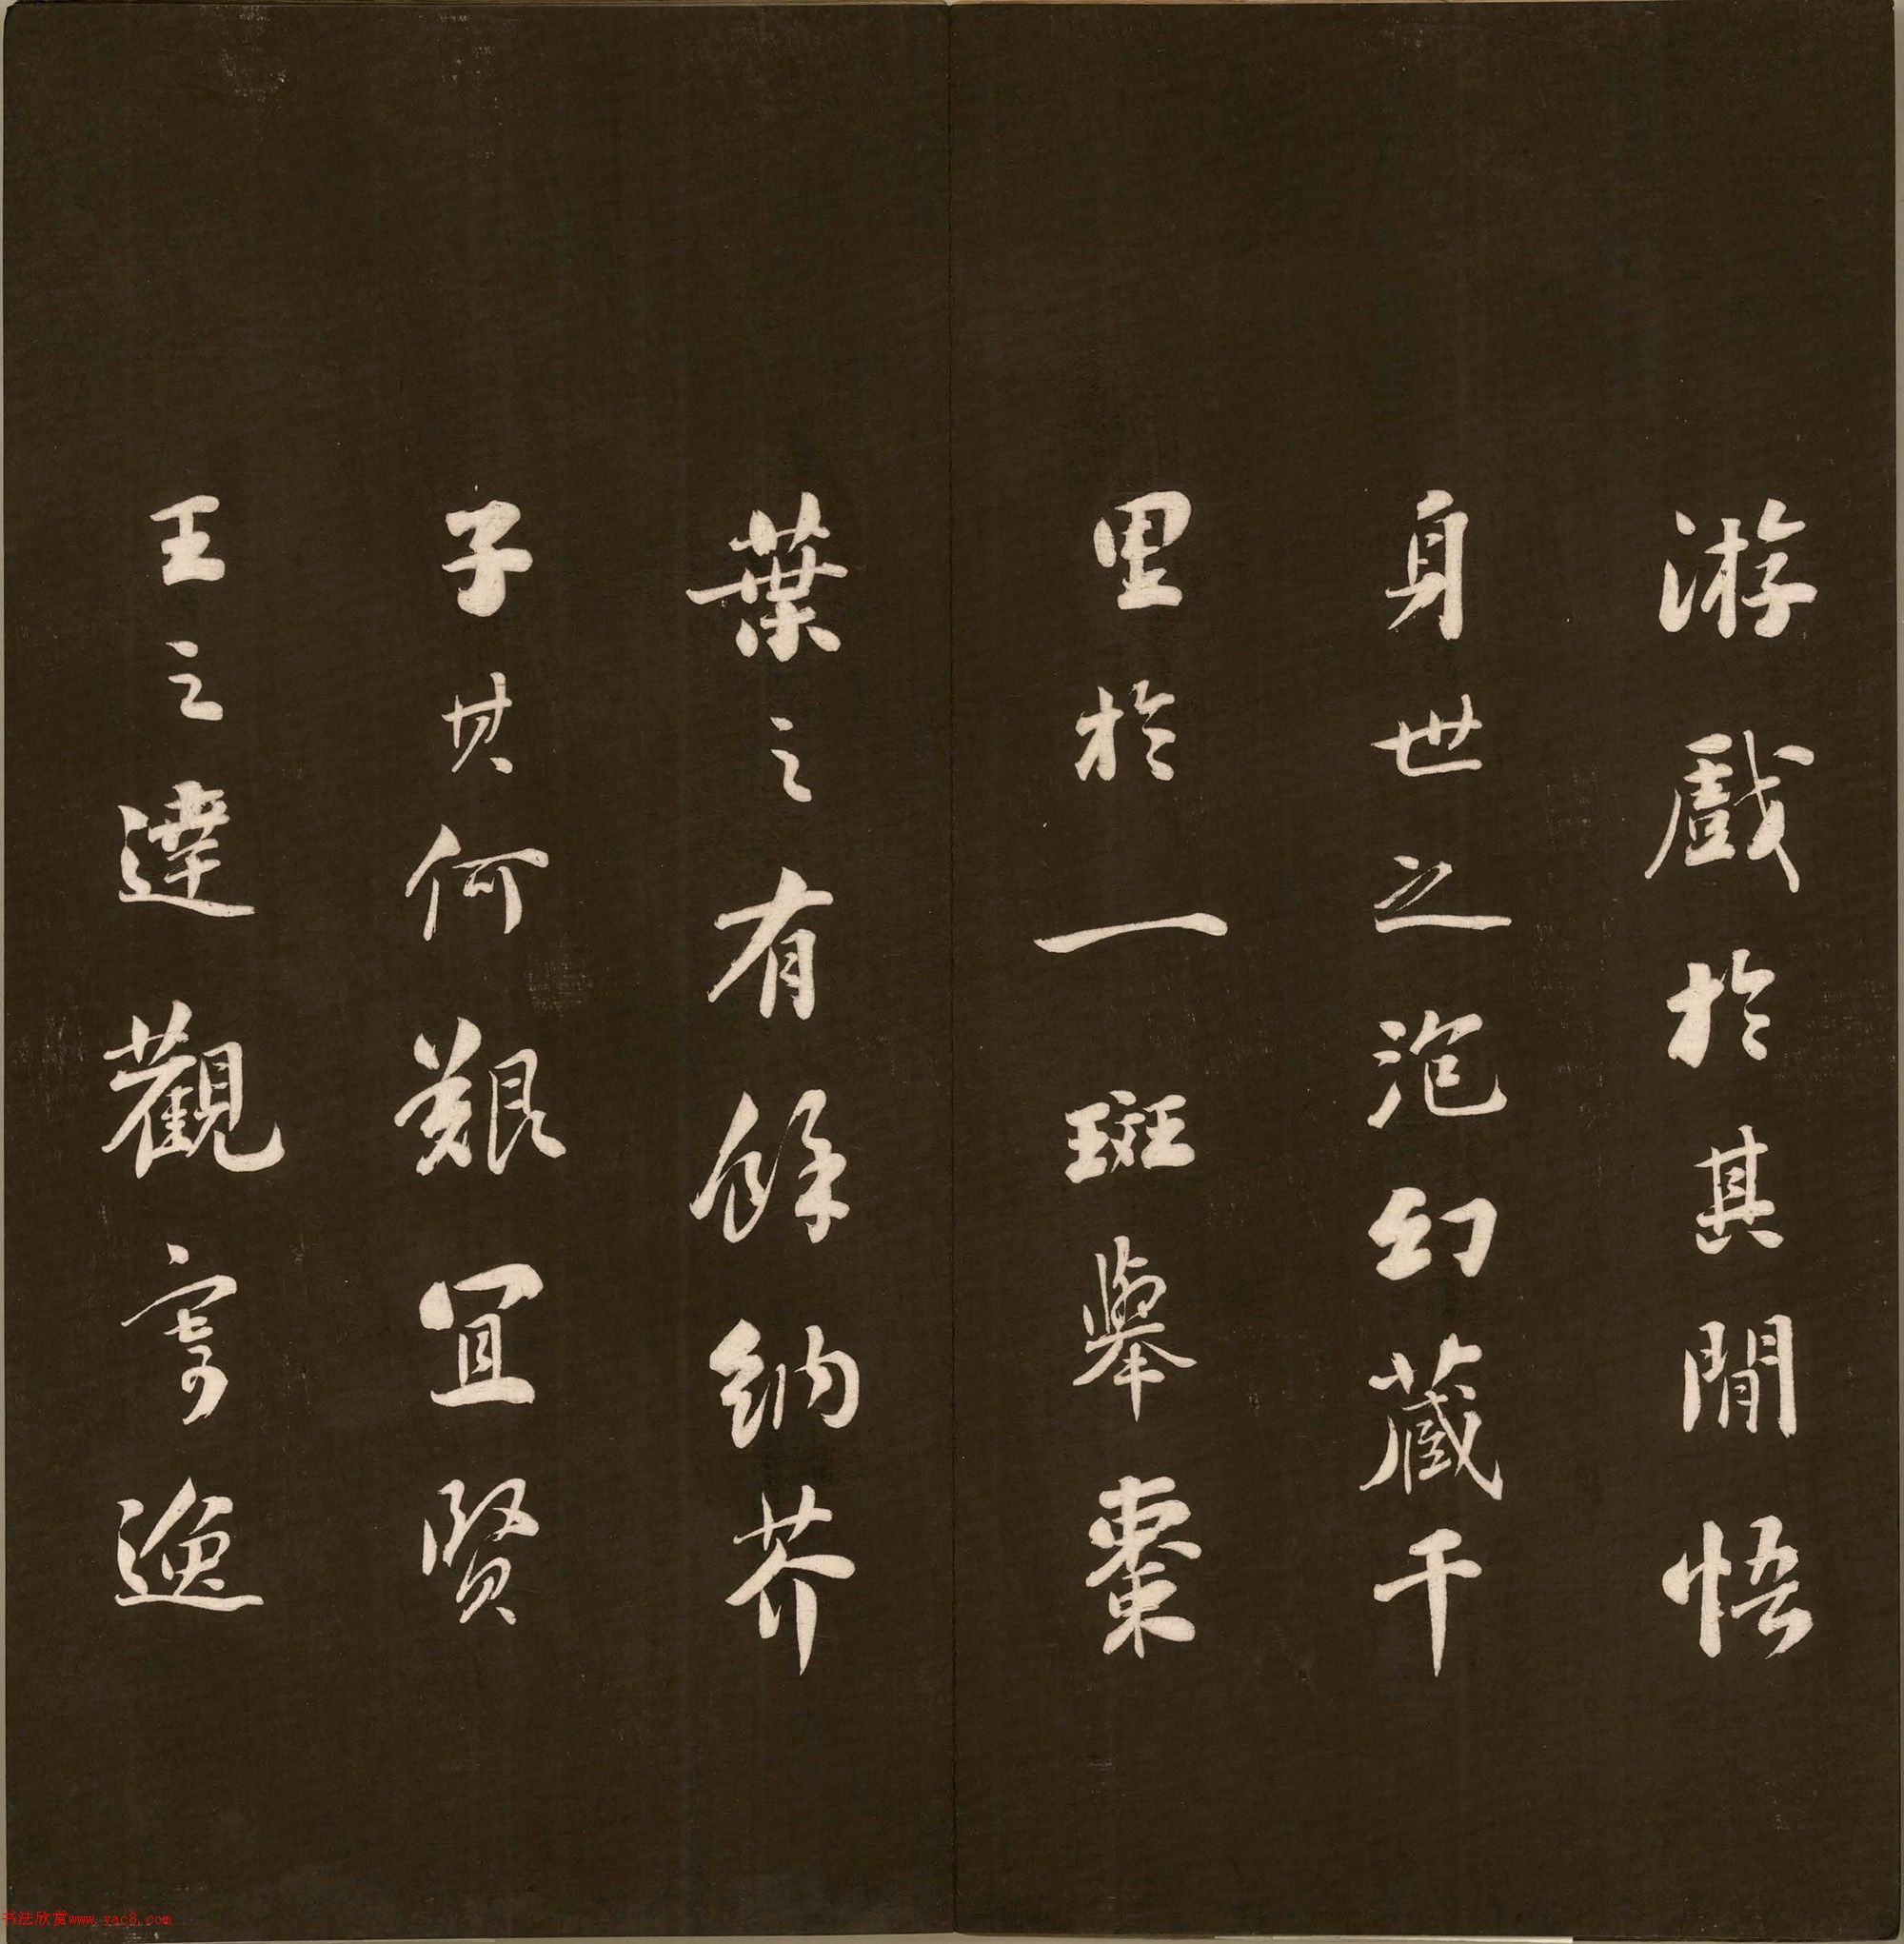 游戲於其間悟
身世之泡幻藏千
里於一斑舉棗
葉之有餘納芥
子其何艱宜賢
王之達觀寄逸
书法欣赏www.yac8.com